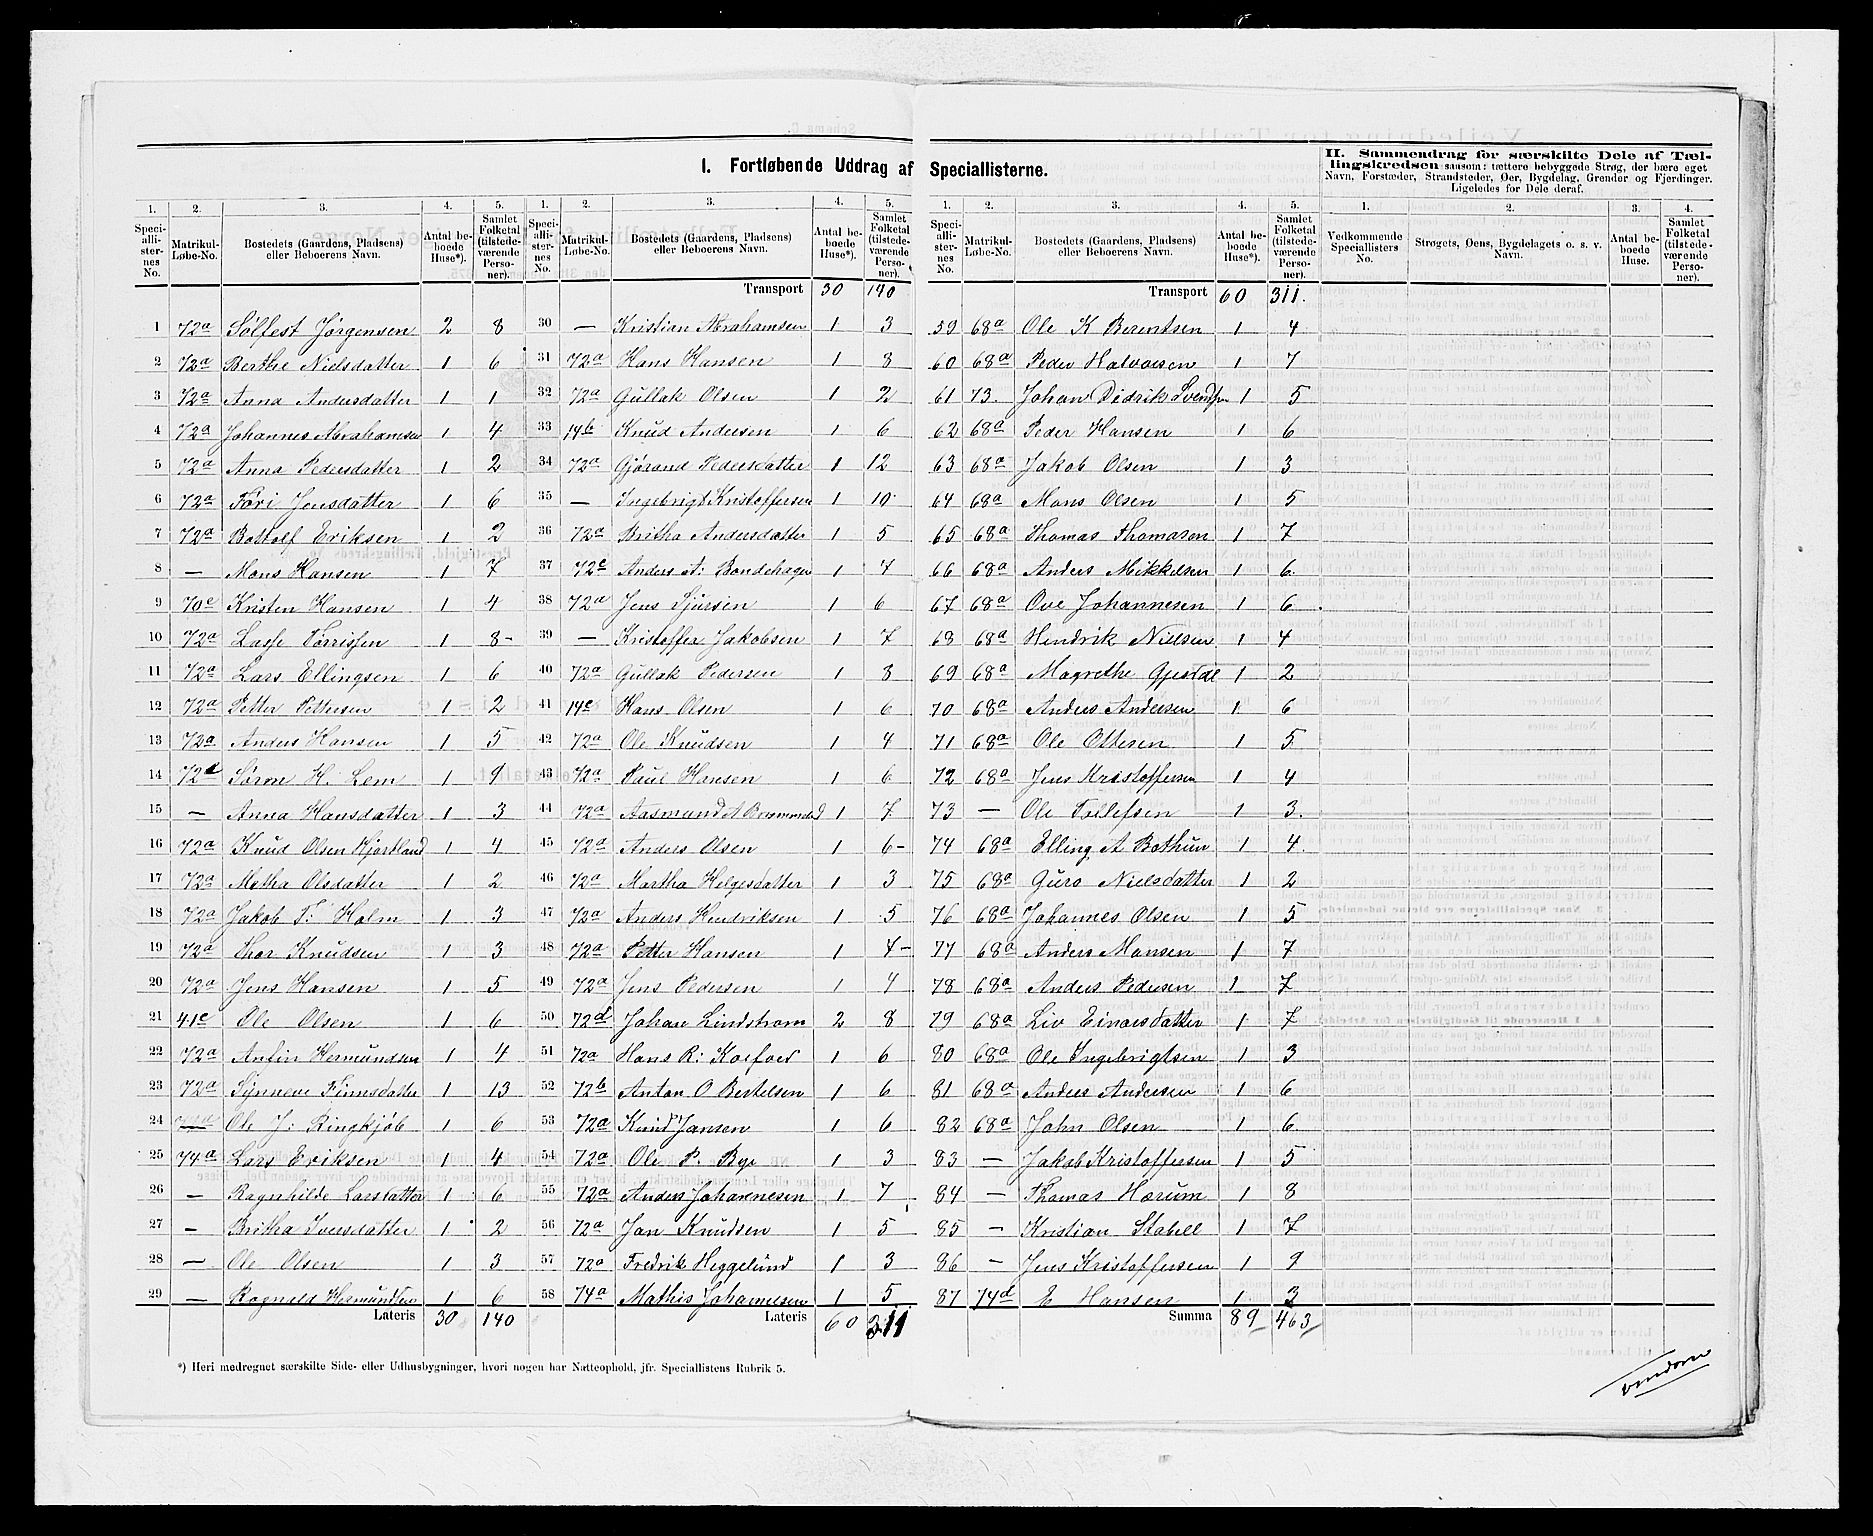 I. Fortløbende Uddrag af Speciallisterne.
II. Sammendrag for særskilte Dele af Tællingskredsen saasom: tættere bebyggede Strøg, der bære eget Navn, Forstæder, Strandsteder, Øer, Bygdelag, Grender og Fjerdinger. Ligeledes for Dele deraf.
1. 2. 3. 4. 5.
Speciallisternes No. Matrikul-Løbe-No. Bostedets (Gaardens, Pladsens) eller Beboerens Navn. Antal beboede Huse*). Samlet Folketal (tilstedeværende Personer).
1 72a Sølfest Jørgensen 2 8
2 72a Berthe Nielsdatter 1 6
3 72a Anna Andersdatter 1 1
4 72a Johannes Abrahamsen 1 4
5 72a Anna Pedersdatter 1 2
6 72a Föri Jensdatter 1 6
7 72a Bottolf Eriksen 1 2
8 — Mons Hansen 1 7
9 70e Kristen Hansen 1 4
10 72a Lasse Torrissen 1 8-
11 72a Lars Ellingsen 1 6
12 72a Petter Pettersen 1 2
13 72a Anders Hansen 1 5
14 72d Søren H. Lem 1 9
15 — Anna Hansdatter 1 3
16 72a Knud Olsen Hjortland 1 4
17 72a Metha Olsdatter 1 2
18 72a Jakob T: Holm 1 3
19 72a Thor Knudsen 1 3
20 72a Jens Hansen 1 5
21 41e Ole Olsen 1 6
22 72a Anfin Hermundsen 1 4
23 72a Synneve Finnsdatter 1 13
24 Ole J: Ringkjøb 1 6
25 74a Lars Eriksen 1 4
26 — Ragnhilde Larsdatter 1 6
27 — Britha Iversdatter 1 2
28 — Ole Olsen 1 3
29 — Ragnald Hermundsen 1 6
Lateris 30 140
1. 2. 3. 4. 5.
Speciallisternes No. Matrikul-Løbe-No. Bostedets (Gaardens, Pladsens) eller Beboerens Navn. Antal beboede Huse*). Samlet Folketal (tilstedeværende Personer).
Transport 30 140
30 — Kristian Abrahamsen 1 3
31 72a Hans Hansen 1 8
32 72a Gullak Olsen 1 2
33 14b Knud Andersen 1 6
34 72a Gjørand Pedersdatter 1 12
35 — Ingebrigt Kristoffersen 1 10
36 72a Britha Andersdatter 1 5
37 72c Anders A: Bondehagen 1 7
38 72a Jens Sjursen 1 6
39 — Kristoffer Jakobsen 1 7
40 72a Gullak Pedersen 1 8
41 14c Hans Olsen 1 6
42 72a Ole Knudsen 1 4
43 72a Paul Hansen 1 6
44 72a Aasmund A 1 7
45 72a Anders Olsen 1 6-
46 72a Martha Helgesdatter 1 3
47 72a Anders Hendriksen 1 5
48 72a Petter Hansen 1 4-
49 72a Jens Pedersen 1 4
50 72d Johan Lindstrøm 2 8
51 72a Hans R: Koefoed 1 6
52 72b Anton O Bertelsen 1 6
53 72a Knud Jansen 1 6
54 72a Ole P. Bye 1 3
55 72a Anders Johannesen 1 7
56 72a Jan Knudsen 1 5
57 72a Fredrik Heggelund 1 3
58 74a Mathis Johannesen 1 5
Lateris 60 311
1. 2. 3. 4. 5.
Speciallisternes No. Matrikul-Løbe-No. Bostedets (Gaardens, Pladsens) eller Beboerens Navn. Antal beboede Huse*). Samlet Folketal (tilstedeværende Personer).
Transport 60 311.
59 68a Ole K Berentsen 1 4
60 68a Peder Halvorsen 1 7
61 73. Johan Didrik Svendsen 1 5
62 68a Peder Hansen 1 6
63 68a Jakob Olsen 1 3
64 68a Mons Olsen 1 5
65 68a Thomas Thomasen 1 7
66 68a Anders Mikkelsen 1 6.
67 68a Ove Johannesen 1 6
68 68a Hendrik Nielsen 1 4
69 68a Magrethe Gjestdl 1 2
70 68a Anders Andersen 1 6
71 68a Ole Ottesen 1 5
72 68a Jens Kristoffersen 1 4
73 — Ole Tollefsen 1 3.
74 68a Elling A Bothun 1 4.
75 68a Guro Nielsdatter 1 2
76 68a Johannes Olsen 1 5
77 68a Anders Monsen 1 7
78 68a Anders Pedersen 1 7
79 68a Liv Einarsdatter 1 7
80 68a Ole Ingebrigtsen 1 3
81 68a Anders Andersen 1 6
82 68a John Olsen 1 6
83 — Jakob Kristoffersen 1 5
84 — Thomas Hærum 1 8
85 — Kristian Stabell 1 7
86 — Jens Kristoffersen 1 9
87 74d E Hansen 1 3
Summa 89 463
1. 2. 3. 4.
Vedkommende Speciallisters No. Strøgets, Øens, Bygdelagets o. s. v. Navn. Antal beboede Huse. Samlet Folketal (tilstedeværende Personer).
*) Heri medregnet særskilte Side- eller Udhusbygninger, hvori nogen har Natteophold, jfr. Speciallistens Rubrik 5.